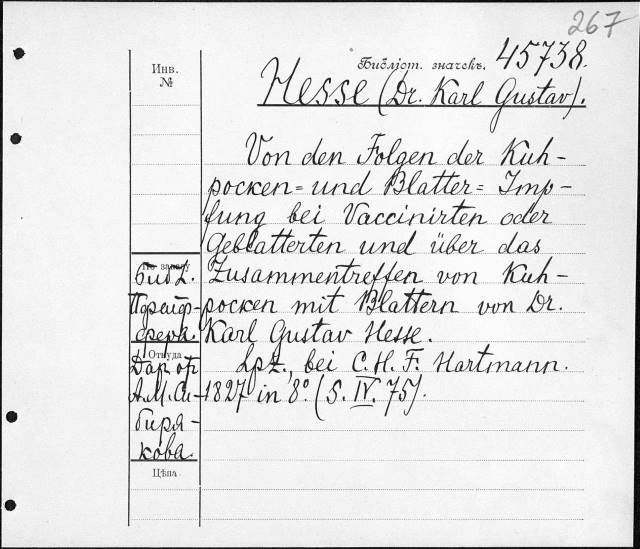 267
Инв. №
Библіот. значекъ. 45738.
Hesse (Dr. Karl Gustav).
Von den Folgen der Kuh-
pocken= und Blatter= Imp-
fung bei Vaccinirten oder
Geblatterten und über das
Zusammentreffen von Kuh-
pocken mit Blattern von Dr.
Karl Gustav Hesse.
Lpz., bei C. H. F. Hartmann.
1827 in 8° (S. IV. 75).
Библ.
Пфейф-
фера.
Откуда
Дар от
А. М. Си-
биря-
кова.
Цѣна.